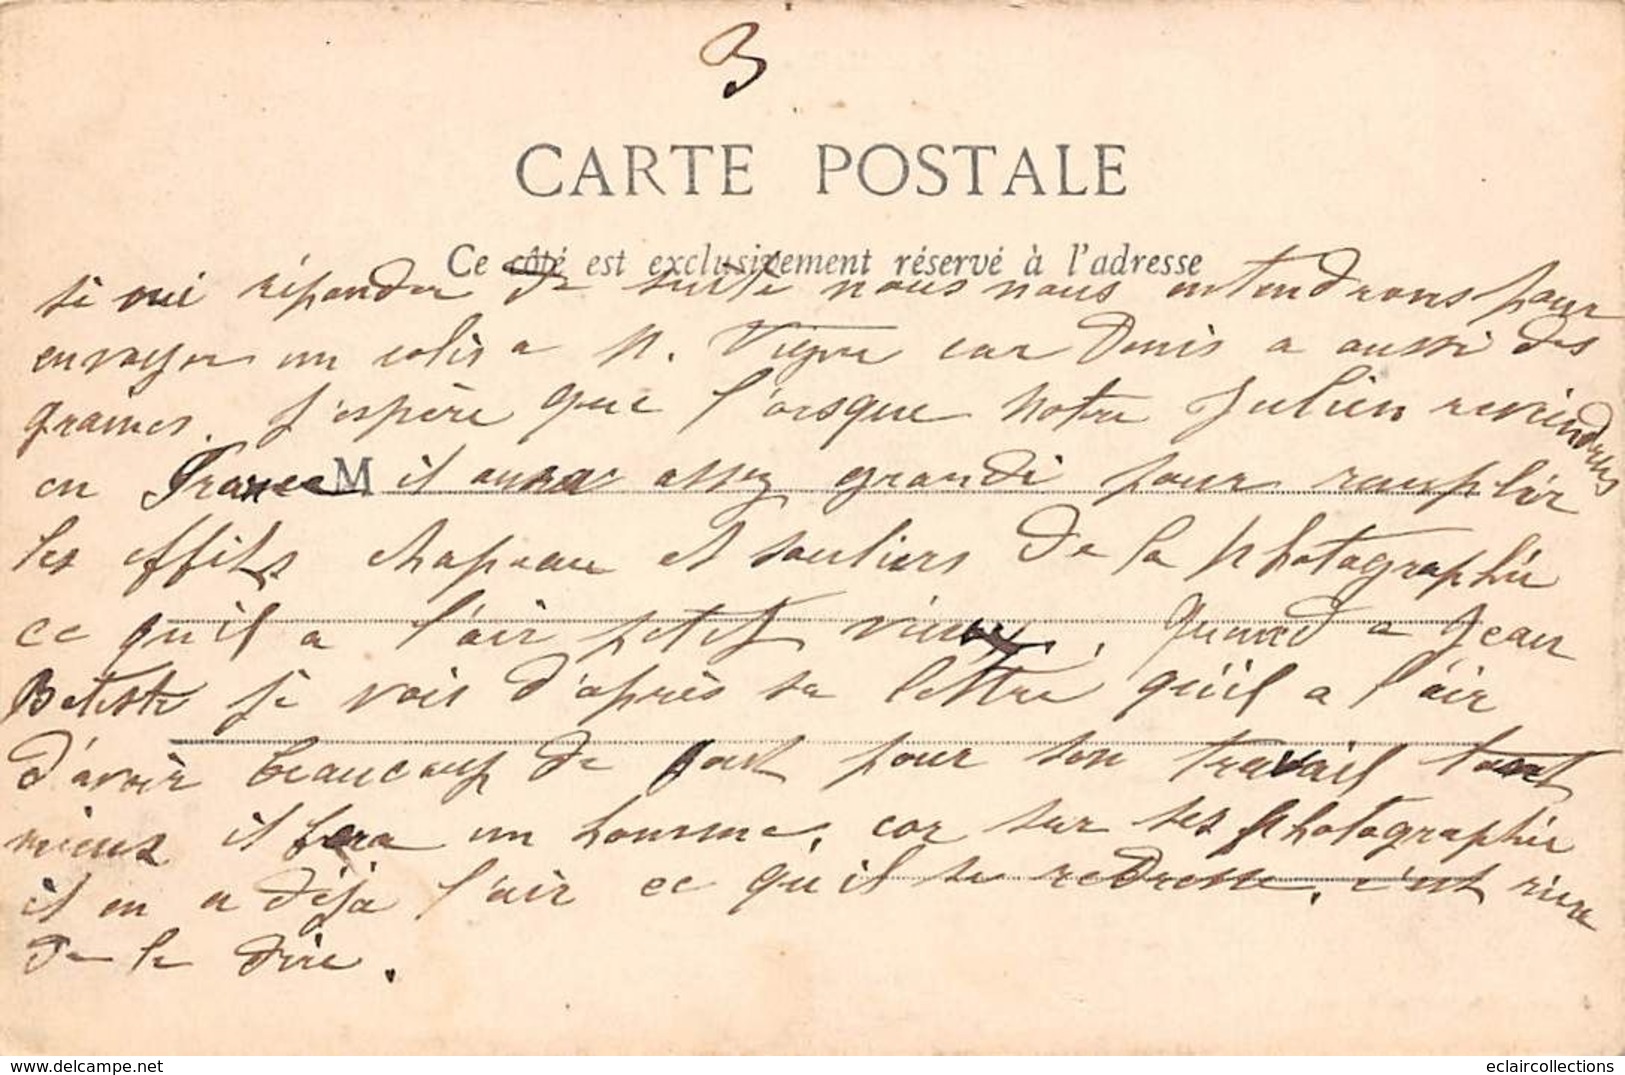 3
CARTE POSTALE
Ce côté est exclusivement réservé à l'adresse
si oui répondez de suite nous nous entendrons pour
envoyer un colis a M. car Denis a aussi des
graines. J'espère que l'orsque notre Julien reviendras
en France il aura assez grandi pour remplir
les effits chapeau et souliers de la photographie
ce qu'il a l'air petit vieux. Quand a Jean
Batiste je vois d'après sa lettre qu'il a l'air
d'avoir beaucoup de gout pour son travail tant
mieux il fera un homme, car sur ses photographie
il en a déja l'air ce qu'il se redresse, c'est rien
de le dire.
M
eclaircollections